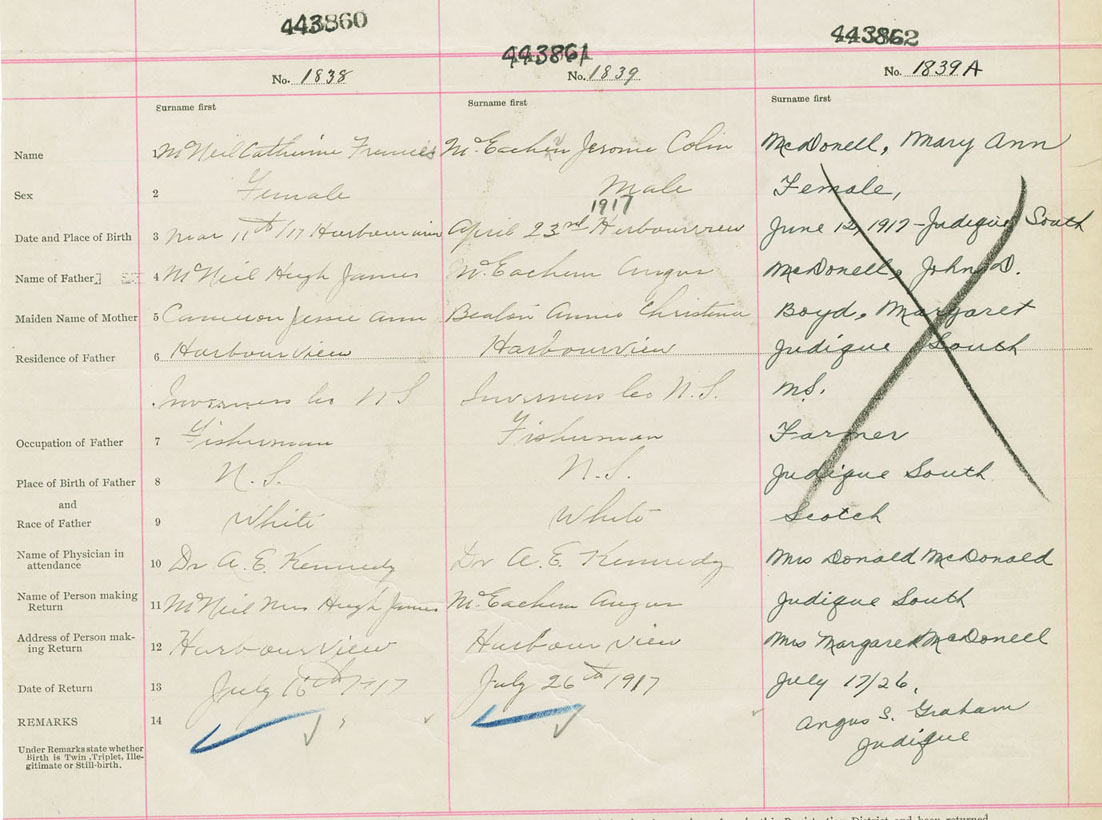 443860
443861
443862
No. 1838
No. 1839
No. 1839A
Surname first
Surname first
Surname first
Name 1 McNeil Catherine Frances McEachen Jerome Colin McDonell, Mary Ann
Sex 2 Female Male Female,
1917
Date and Place of Birth 3 Mar 11th/17 Harbourview April 23rd Harbourview June 12, 1917 - Judique South
Name of Father 4 McNeil Hugh James McEachern Angus McDonell, John D.
Maiden Name of Mother 5 Cameron Jessie Ann Beaton Annie Christina Boyd, Margaret
Residence of Father 6 Harbourview Harbourview Judique South
Inverness Co N S Inverness Co N.S. N.S.
Occupation of Father 7 Fisherman Fisherman Farmer
Place of Birth of Father 8 N.S. N.S. Judique South
and
Race of Father 9 White White Scotch
Name of Physician in
attendance 10 Dr A. E. Kennedy Dr A. E. Kennedy Mrs Donald McDonald
Name of Person making
Return 11 McNeil Mrs Hugh James McEachern Angus Judique South
Address of Person mak-
ing Return 12 Harbourview Harbour view Mrs Margaret McDonell
Date of Return 13 July 16th 1917 July 26th 1917 July 17/26.
REMARKS 14 Angus S. Graham
Judique
Under Remarks state whether
Birth is Twin, Triplet, Ille-
gitimate or Still-birth.